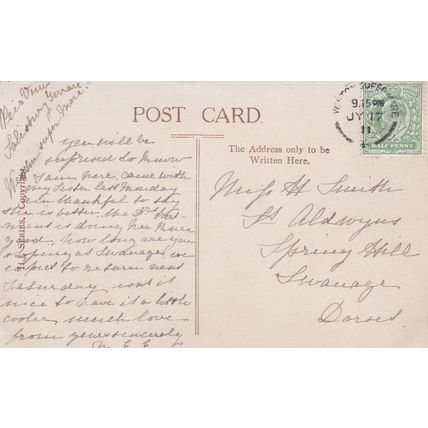 Pier View
Salisbury Terrace
Weston super Mare.
POST CARD.
WESTON-SUPER-MARE
9.15 PM
JY 17
11
HALF PENNY
The Address only to be
Written Here.
you will be
suprised to know
I am here, came with
my sister last Monday
am thankful to say
she is better, the
ment is doing her more
good, how long are you
staying at Swanage, we
expect to return next
Saturday isnt it
nice to have it a little
cooler much love
from yours sincerely
M. E. E.
Miss H Smith
St Aldwyns
Spring Hill
Swanage
Dorset
SERIES. Copyright